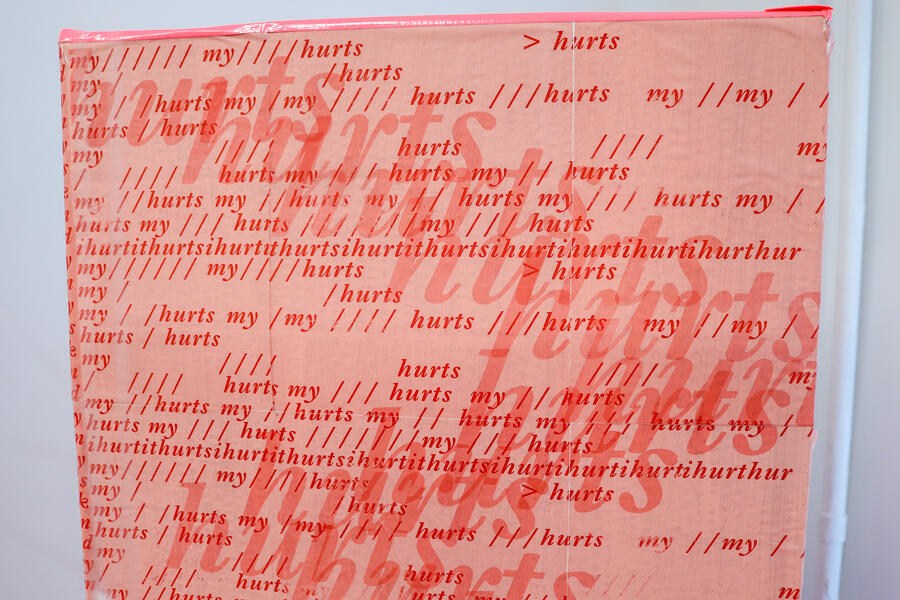 my////// my////hurts > hurts
my / /hurts
my / /hurts my /my //// hurts ///hurts my //my / /
hurts / /hurts
my //// hurts //// my
/ //// hurts my /// hurts my // hurts
my //hurts my //hurts my // hurts my /// hurts my / /
hurts my /// hurts //////my /// hurts
ihurtithurtsihurtithurtsihurtithurtsihurtihurtihurtihurthur
my////// my////hurts > hurts
my / /hurts
my / /hurts my /my //// hurts ///hurts my //my / /
hurts / hurts
my //// hurts ///// my
/ //// hurts my /// hurts my //hurts
my //hurts my //hurts my // hurts my /// hurts my / /
hurts my /// hurts //////my /// hurts
ihurtithurtsihurtithurtsihurtithurtsihurtihurtihurtihurthur
my////// my////hurts > hurts
my / /hurts
my / /hurts my /my //// hurts ///hurts my //my / /
hurts / hurts
my //// hurts
/ //// hurts hurts m
hurts
hurts
hurts
hurts
hurts
hurts
hurts